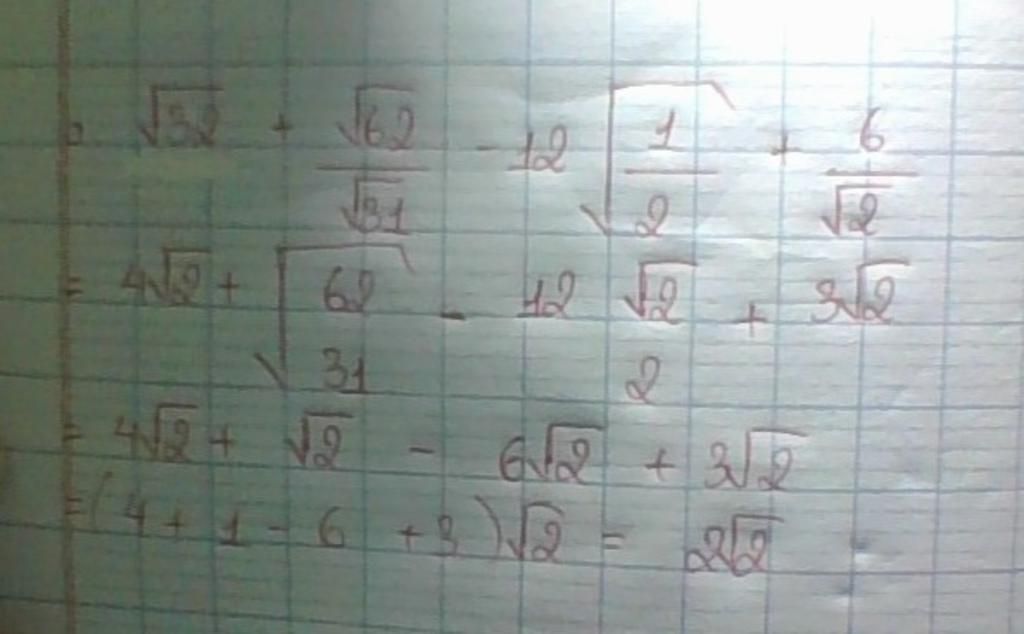 b. √32 + √62/√31 - 12 √(1/2) + 6/√2
= 4√2 + √(62/31) - 12 √2/2 + 3√2
= 4√2 + √2 - 6√2 + 3√2
= (4 + 1 - 6 + 3)√2 = 2√2